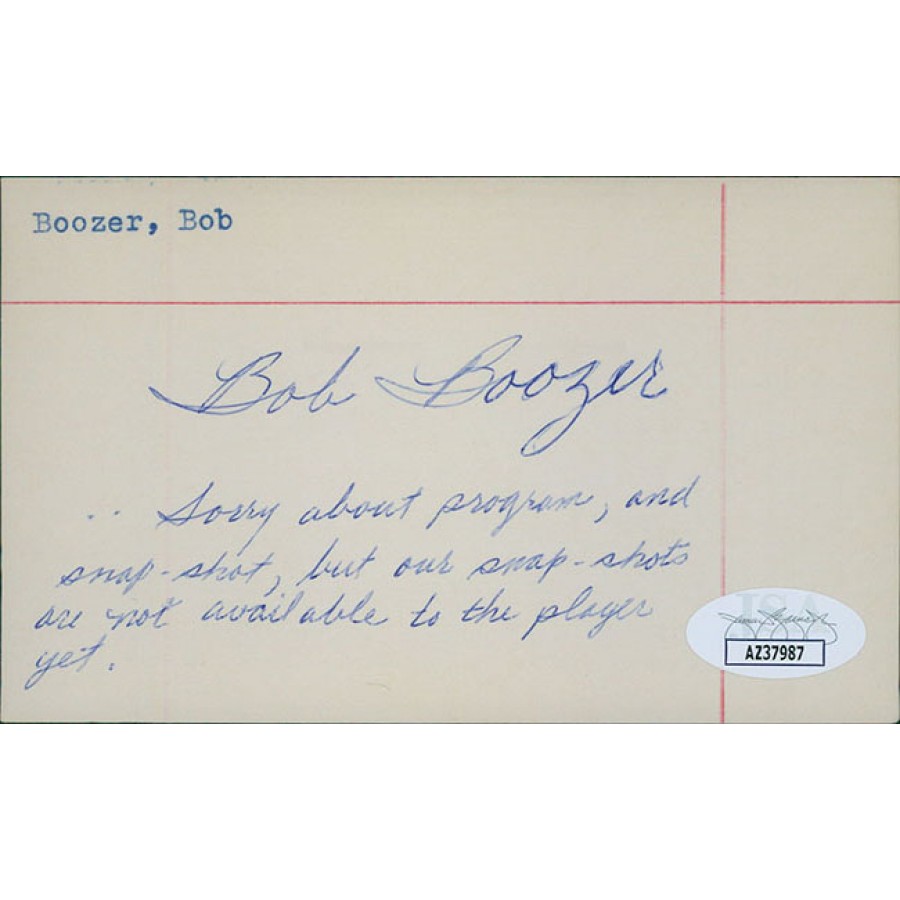 Boozer, Bob
Bob Boozer
.. Sorry about program, and
snap-shot, but our snap-shots
are not available to the player
yet.
JSA
AZ37987